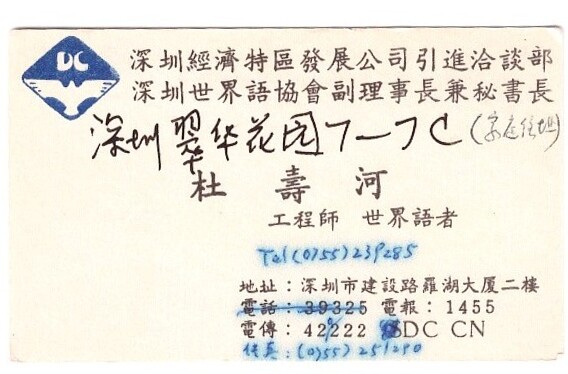 DC
深圳經濟特區發展公司引進洽談部
深圳世界語協會副理事長兼秘書長
深圳翠华花园7-7C(家庭住址)
杜壽河
工程師 世界語者
Tel(0755)239285
地址:深圳市建設路羅湖大厦二樓
電話:39325 電報:1455
電傳: SDC CN
传真:(0755)251290